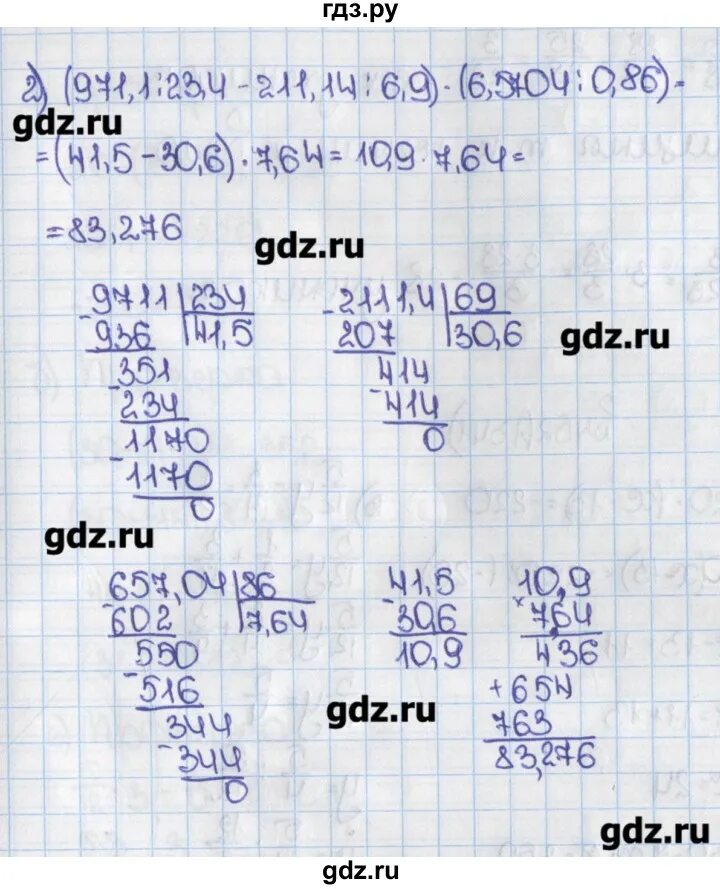 гдз.ру
2) (971,1:23,4 - 211,14:6,9)·(6,5704:0,86)=
gdz.ru
=(41,5-30,6)·7,64=10,9·7,64=
=83,276
gdz.ru
9711 234
- 936 41,5
351
- 234
1170
- 1170
0
2111,4 69
- 207 30,6
414
- 414
0
gdz.ru
gdz.ru
657,04 86
- 602 7,64
550
- 516
344
- 344
0
41,5
- 30,6
10,9
10,9
× 7,64
436
+ 654
763
83,276
gdz.ru
gdz.ru
gdz.ru